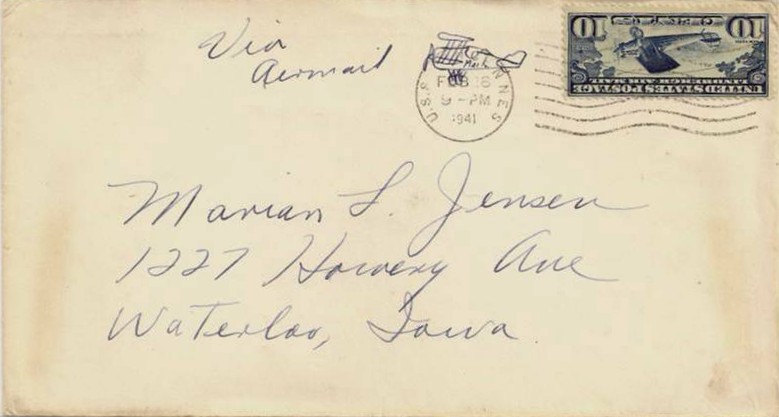 Via
Airmail
Air
Mail
U.S.S.
FEB 16
9 - PM
1941
UNITED STATES POSTAGE
10 10
Marian L. Jensen
1227 Howery Ave
Waterloo, Iowa